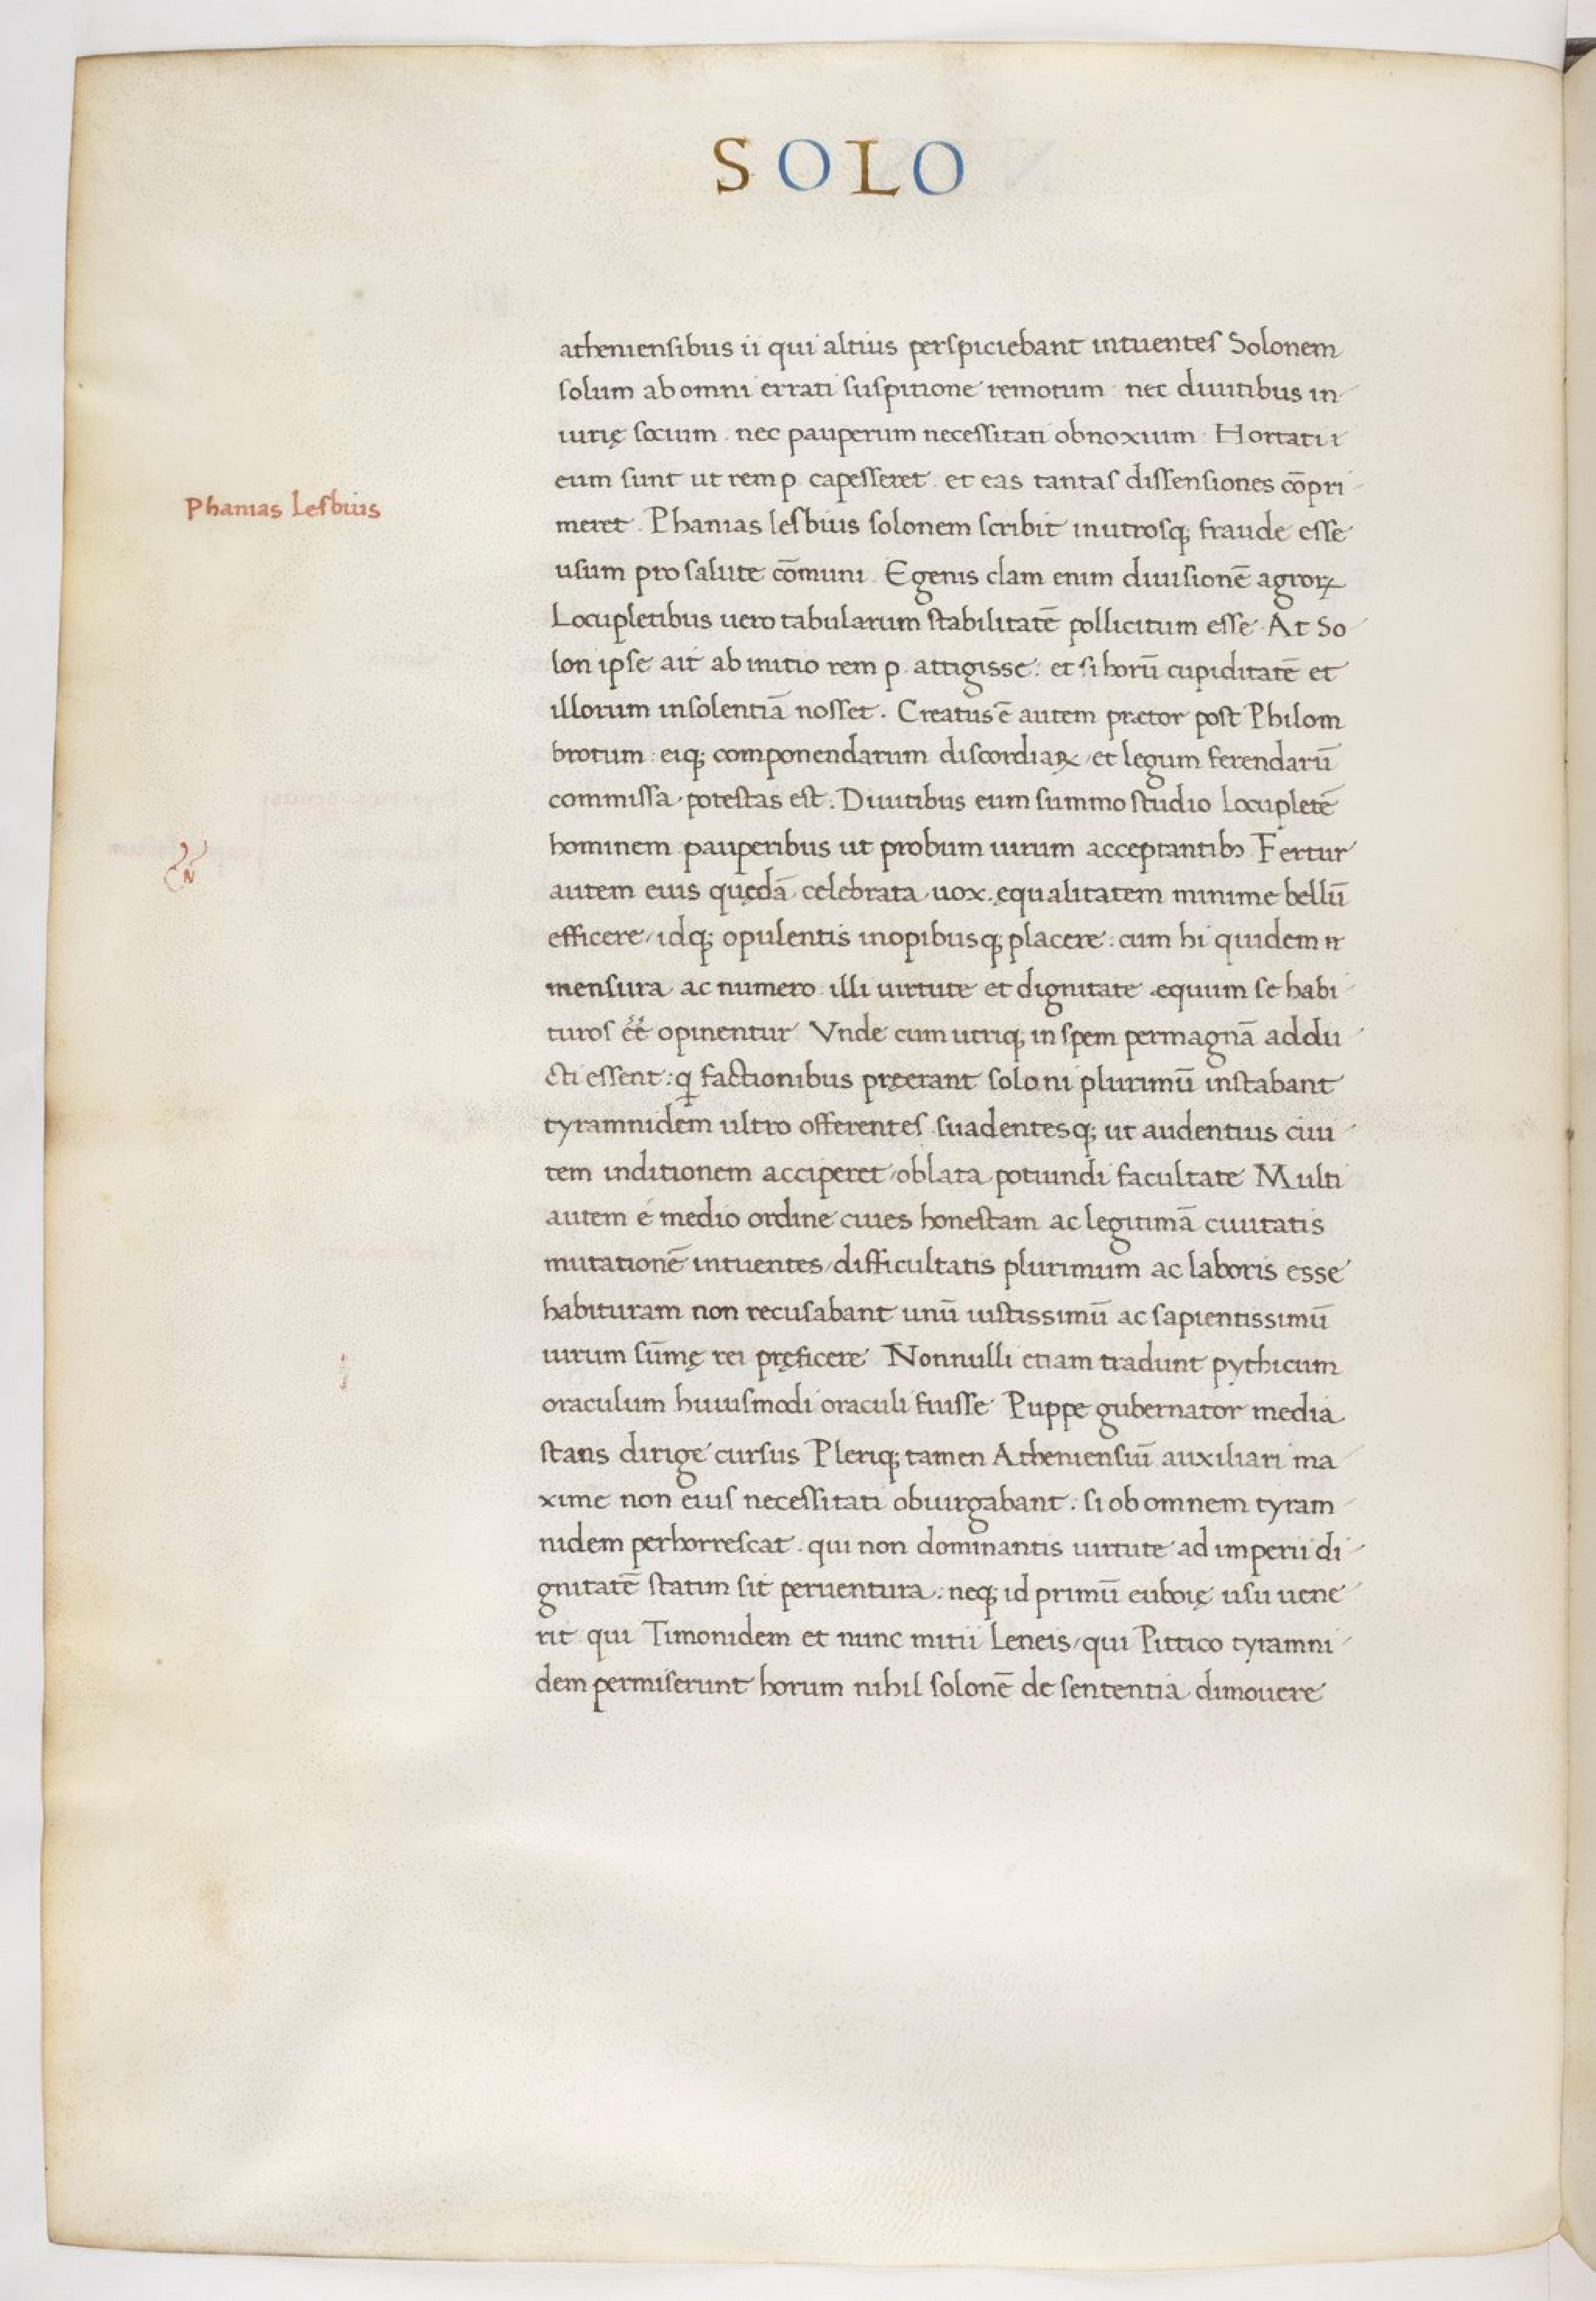 SOLO
atheniensibus ii qui altius perspiciebant intuentes Solonem
solum ab omni errati suspitione remotum nec diuitibus in
iurię socium. nec pauperum necessitati obnoxium. Hortati
eum sunt ut rem p. capesseret. et eas tantas dissensiones cōpri
Phanias Lesbius
meret. Phanias lesbius solonem scribit in utrosq; fraude esse
usum pro salute cōmuni. Egenis clam enim diuisionē agroꝝ
Locupletibus uero tabularum stabilitatē pollicitum esse. At So
lon ipse ait ab initio rem p. attigisse: et si horū cupiditatē et
illorum insolentiā nosset. Creatus ē autem prætor post Philom
brotum. eiq; componendarum discordiaꝝ/et legum ferendarū
commissa potestas est. Diuitibus eum summo studio locupletē
hominem pauperibus ut probum uirum acceptantibꝯ Fertur
autem eius quędā celebrata uox. ęqualitatem minime bellū
efficere/idq; opulentis inopibusq; placere: cum hi quidem
mensura ac numero illi uirtute et dignitate æquum se habi
turos eē opinentur Vnde cum utriq; in spem permagnā addu
cti essent: qͥ factionibus pręerant soloni plurimū instabant
tyramnidem ultro offerentes suadentesq; ut audentius ciui
tem in ditionem acciperet/oblata potiundi facultate Multi
autem e medio ordine ciues honestam ac legitimā ciuitatis
mutationē intuentes/difficultatis plurimum ac laboris esse
habituram non recusabant unū iustissimū ac sapientissimū
uirum sūmę rei pręficere Nonnulli etiam tradunt pythicum
oraculum huiusmodi oraculi fuisse Puppe gubernator media
stans dirige cursus Pleriq; tamen Atheniensiū auxiliari ma
xime non eius necessitati obiurgabant: si ob omnem tyram
nidem perhorrescat. qui non dominantis uirtute ad imperii di
gnitatē statim sit peruentura: neq; id primū euboię usu uene
rit qui Timonidem et nunc mitii Leneis/qui Pittico tyramni
dem permiserunt horum nihil solonē de sententia dimouere